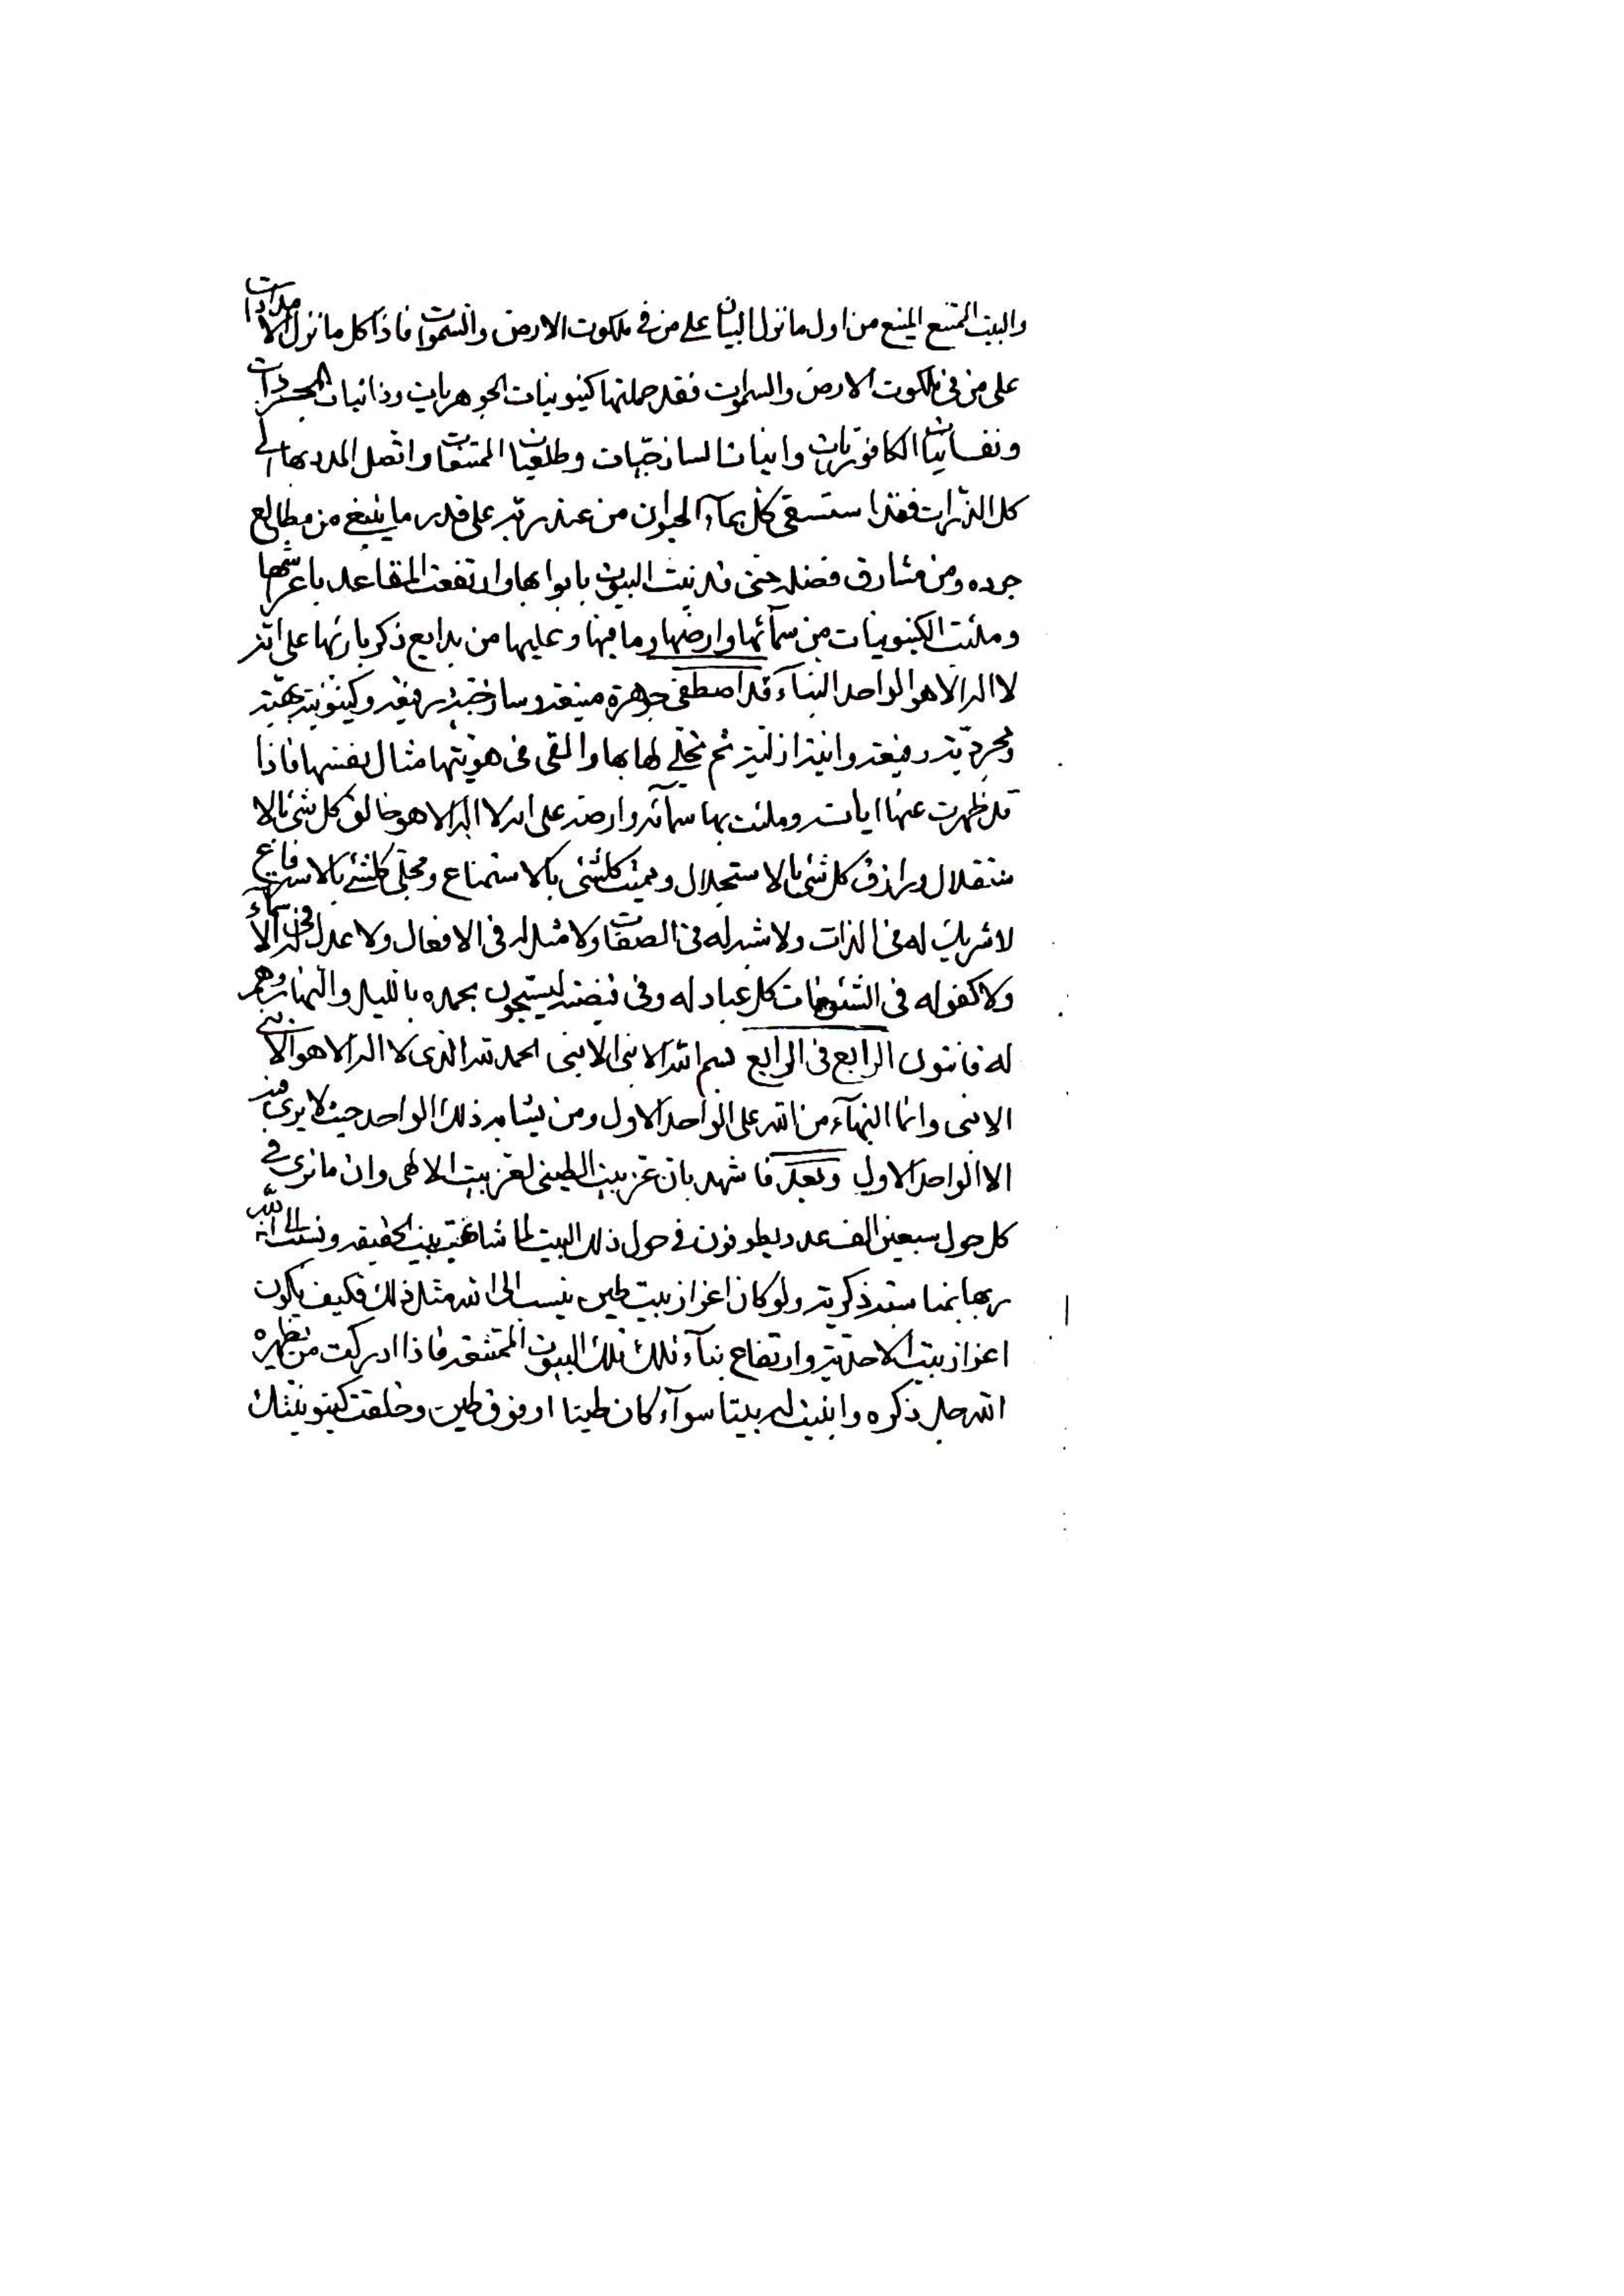 والبیت الممتنع المنیع من اول ما نزل البیان علی من فی ملکوت الارض والسموات فاذا کل ما نزل الامدادات
علی من فی ملکوت الارض والسموات فقد حملتها کینونیات الجوهریات وذاتیات المجردات
ونفسانیات الکافوریات وانیات الساذجیات وطلعیات المتشعشعات واتصل المدد بها الی
کل الذرات فقد استسقی کل بماء الحیوان من عند ربه علی قدر ما ینبغی من مطالع
جوده ومن مشارق فضله حتی قد بنیت البیوت بابوابها وارتفعت المقاعد باعرشها
وملئت الکینونیات من سمآئها وارضها وما فیها وعلیها من بدایع ذکر بارئها علی انه
لا اله الا هو الواحد البنآء قد اصطفی جوهرة منیعة وساذجیة رفیعة وکینونیة بهیة
ومجردیة رفیعة وانیة ازلیة ثم تجلی لها بها والقی فی هویتها مثال نفسها فاذا
قد ظهرت عنها ایاته وملئت بها سمآئه وارضه علی انه لا اله الا هو خالق کل شئ بالا
ستقلال ورازق کل شئ بالاستجلال وممیت کلشئ بالاستمناع ومحیی کلشئ بالاسترفاع
لا شریک له فی الذات ولا شبه له فی الصفات ولا مثل له فی الافعال ولا عدل له فی الاسمآء
ولا کفو له فی الشئونات کل عباد له وفی قبضته لیسبحون بحمده باللیل والنهار وهم
له قانتون الرابع فی الرابع بسم الله الابنی الابنی الحمد لله الذی لا اله الا هو الابنی
الابنی وانما البهآء من الله علی الواحد الاول ومن یشابه ذلک الواحد حیث لا یری فیه
الا الواحد الاول وبعد فاشهد بان عز بیت الطینی لعز بیت الالهی وان ما تری فی
کل حول سبعین الف عدد یطوفون فی حول ذلک البیت لما شاء بیت الحقیقة ونسبت الی الله
ربها بنسبته ذکریته ولو کان اعزاز بیت طین ینسب الی الله مثل ذلک فکیف یکون
اعزاز بیت الاحدیة وارتفاع بنآء تلک تلک البیوت الممتنعة فاذا ادرکت من یظهره
الله جل ذکره وابنیت له بیتا سوآء کان طینا او فوق طین وخلقت کینونیتک